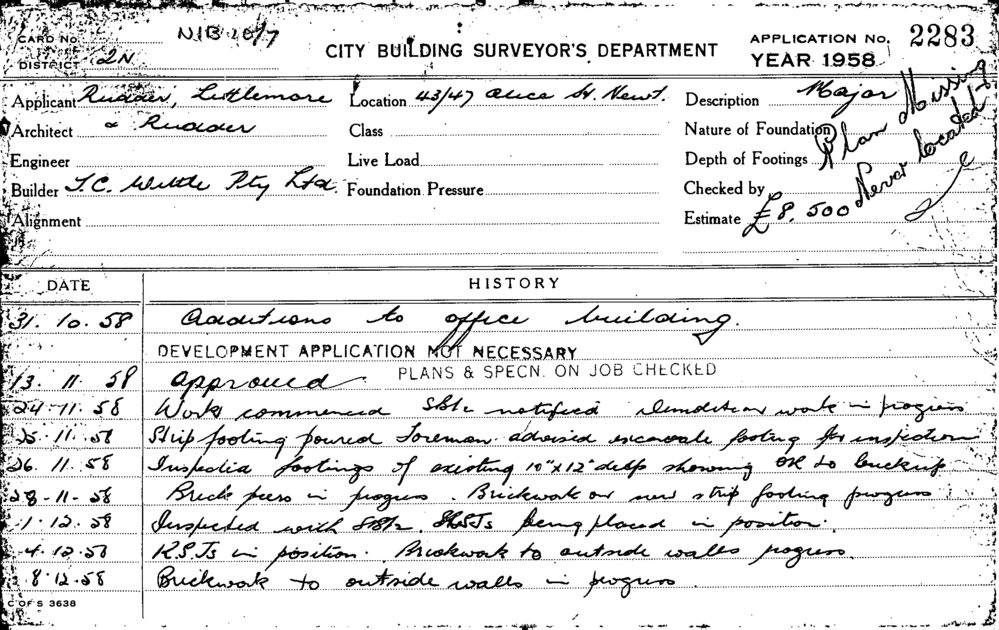 CARD No. NIB 10/7 CITY BUILDING SURVEYOR'S DEPARTMENT APPLICATION No. 2283
DISTRICT 2N YEAR 1958
Applicant Rudder, Littlemore Location 43/47 Alice St. Newt. Description Major
Architect & Rudder Class Nature of Foundation
Engineer Live Load Depth of Footings
Builder T.C. Pty Ltd. Foundation Pressure Checked by
Alignment Estimate £8,500
Plan Missing
Never located
DATE HISTORY
31.10.58 Additions to office building.
DEVELOPMENT APPLICATION NOT NECESSARY
13.11.58 approved PLANS & SPECN. ON JOB CHECKED
24.11.58 Work commenced notified Demolition work in progress
25.11.58 Strip footing poured Foreman advised excavate footing for inspection
26.11.58 Inspected footings of existing 10"x12" deep showing OK to
28-11-58 Brick piers in progress. Brickwork on new strip footing progress
1.12.58 Inspected with being placed in position.
4.12.58 R.S.Js in position. Brickwork to outside walls progress.
8.12.58 Brickwork to outside walls in progress.
C OF S 3638